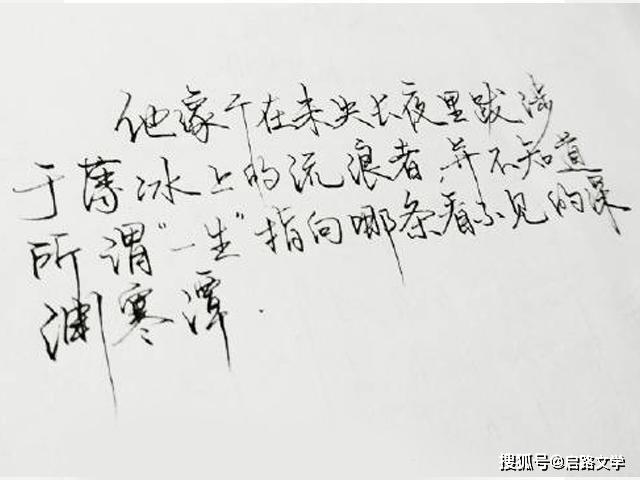 他像个在未央长夜里跋涉
于薄冰上的流浪者,并不知道
所谓“一生”指向哪条看不见的深
渊寒潭.
搜狐号@启路文学